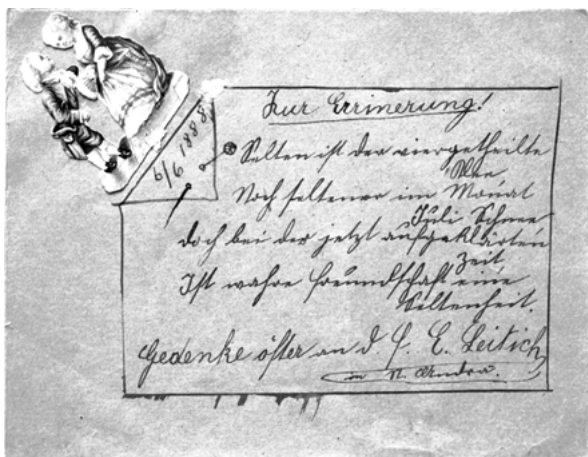 Zur Errinerung!
6/6 1888
Selten ist der viergetheilte
Klee
Noch seltener im Monat
Juli Schnee
doch bei der jetzt aufgeklärten
Zeit
Ist wahre Freundschaft eine
Seltenheit.
Gedenke öfter an d. F. E. Leitich
in N. Andrä.